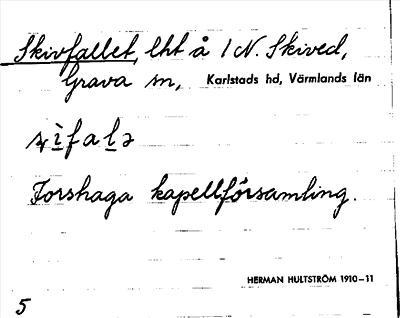 Skivfallet, lht å 1 N. Skived,
Grava sn, Karlstads hd, Värmlands län
Forshaga kapellförsamling.
HERMAN HULTSTRÖM 1910-11
5